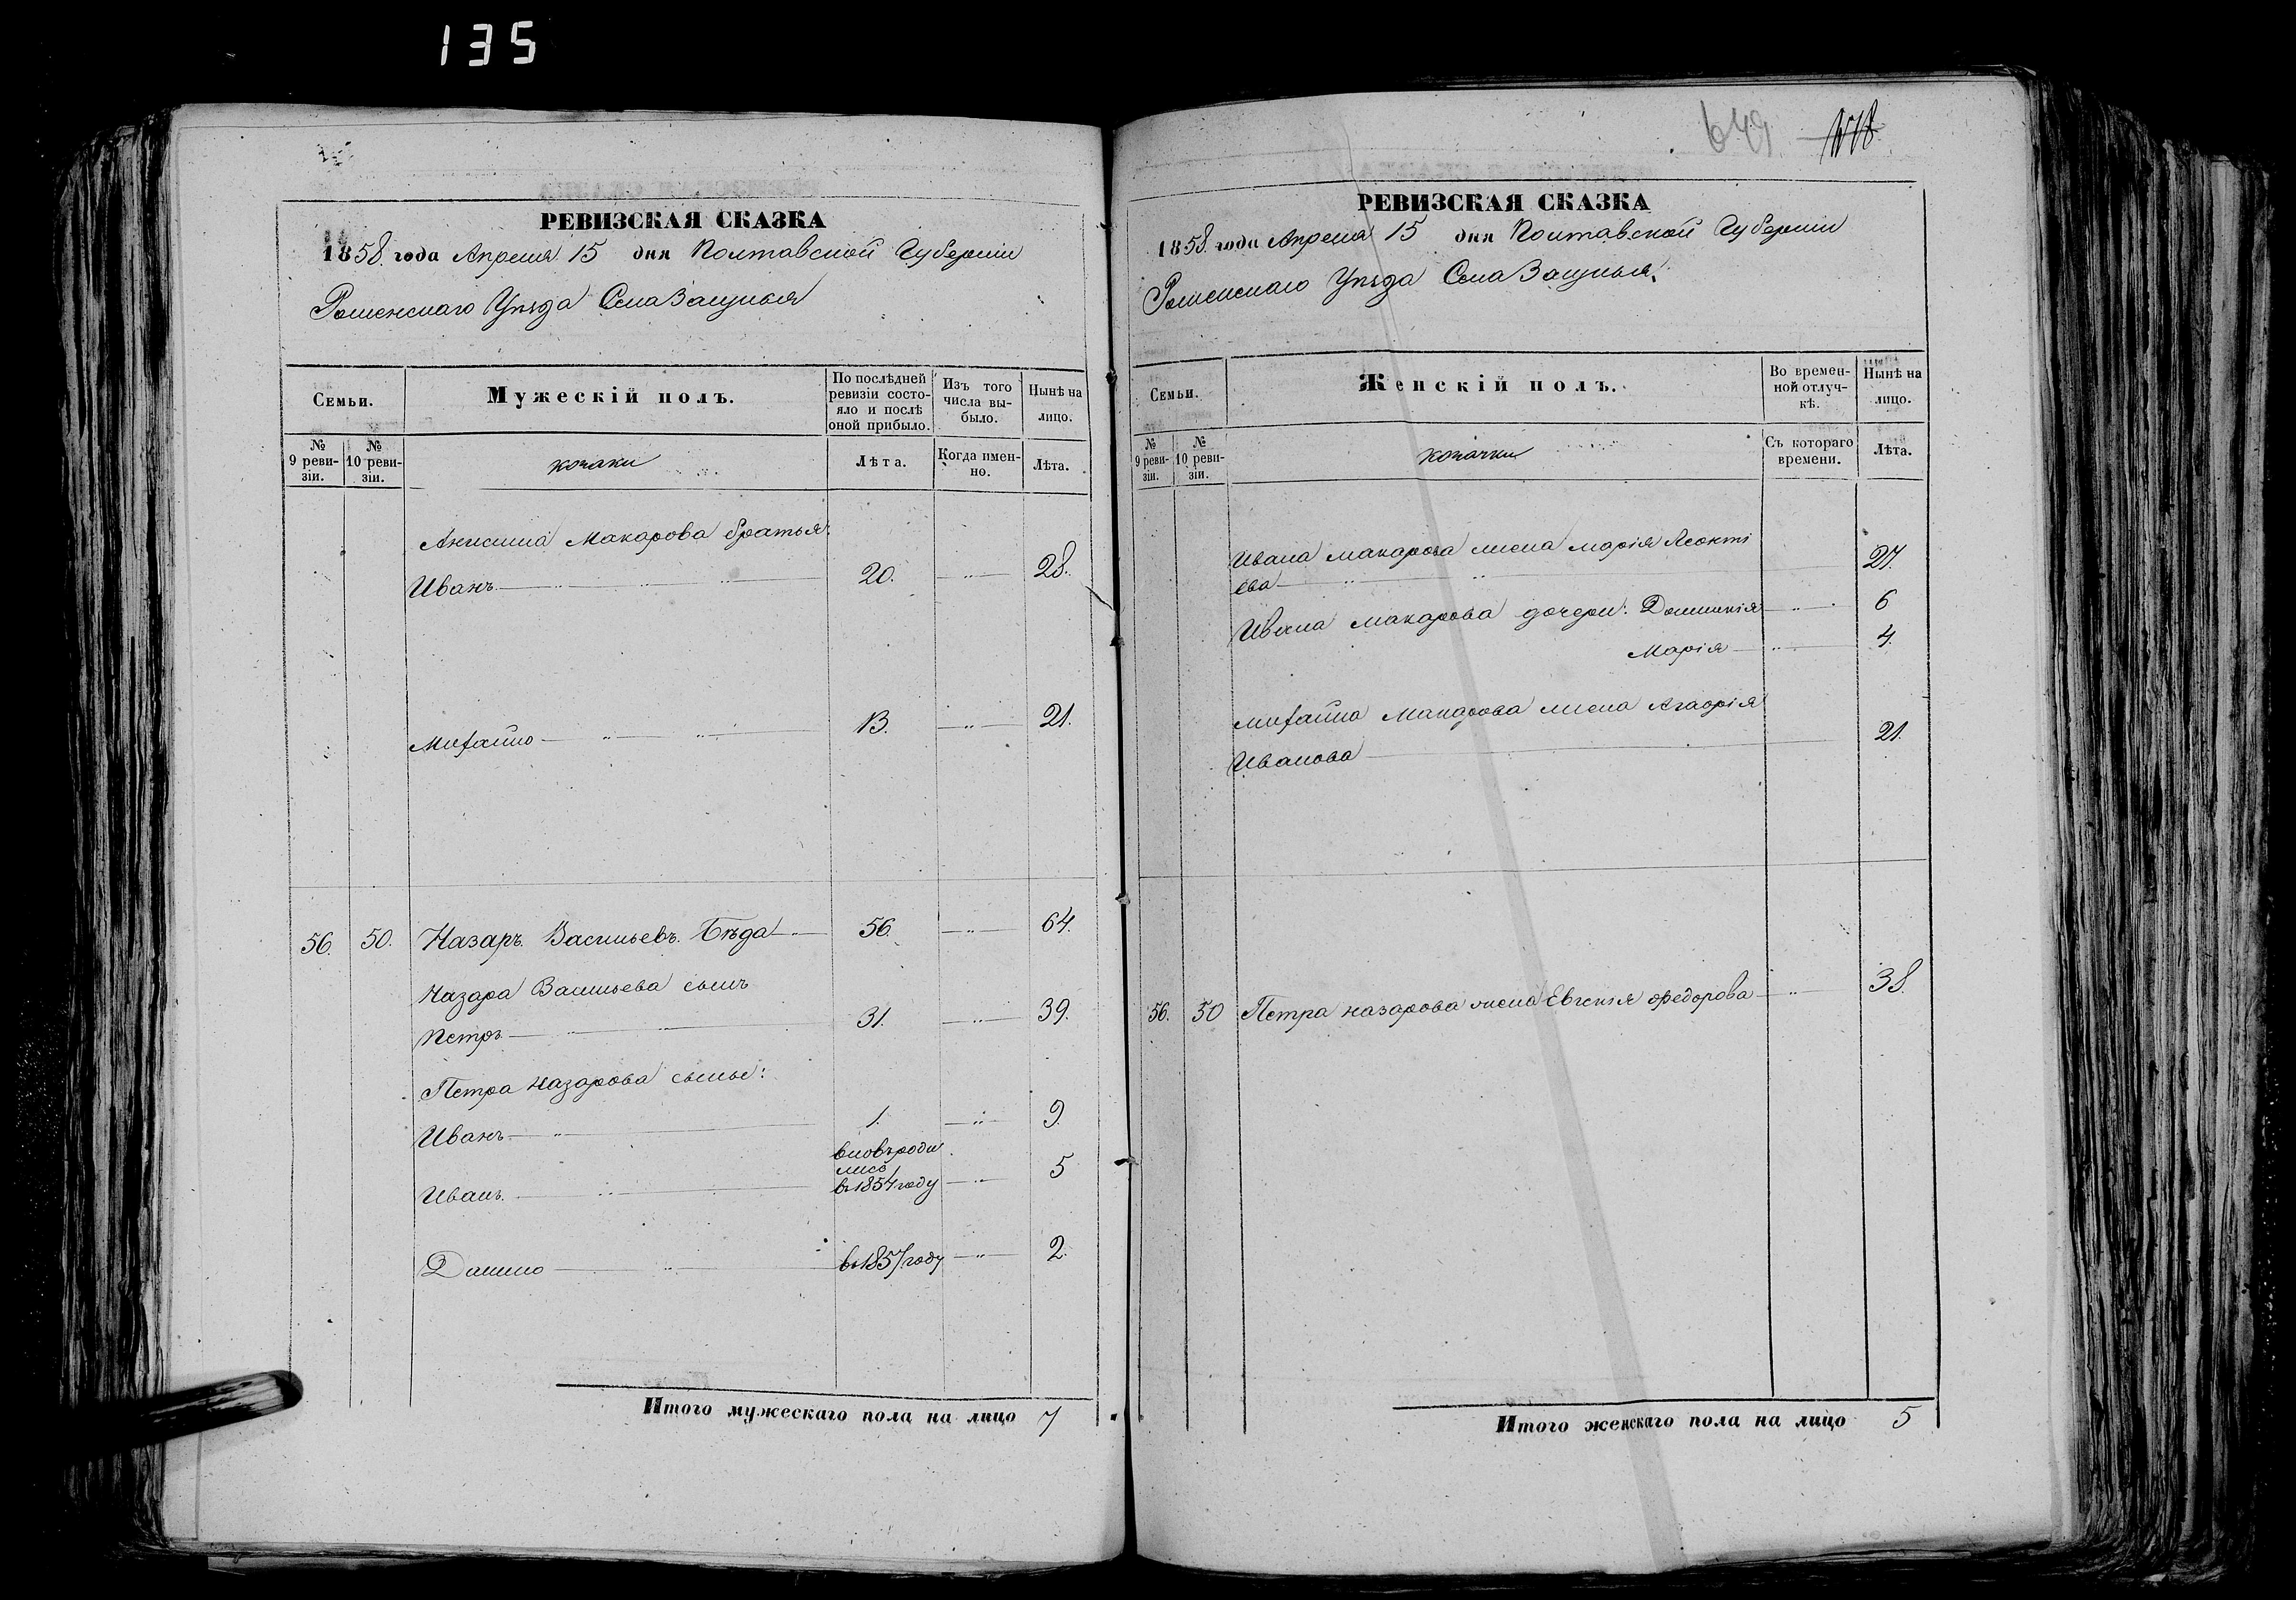 135
РЕВИЗСКАЯ СКАЗКА
1858. года Апреля 15 дня Полтавской Губерніи
Роменскаго Уѣзда Села Засулья
Семьи.
Мужескій полъ.
По послѣдней ревизіи состояло и послѣ оной прибыло.
Изъ того числа выбыло.
Нынѣ на лицо.
№ 9 ревизіи.
№ 10 ревизіи.
козаки
Лѣта.
Когда именно.
Лѣта.
Анисима Макарова братья:
Иванъ 20. 28.
Михайло 13. 21.
56. 50. Назаръ Васильевъ Бѣда 56. 64.
Назара Васильева сынъ
Петръ 31. 39.
Петра Назарова сыны:
Иванъ 1. 9.
вновь роди
лись
Иванъ. въ 1854 году 5
Данило въ 1857 году 2.
Итого мужескаго пола на лицо 7
649
РЕВИЗСКАЯ СКАЗКА
1858. года Апреля 15 дня Полтавской Губерніи
Роменскаго Уѣзда Села Засулья.
Семьи.
Женскій полъ.
Во временной отлучкѣ.
Нынѣ на лицо.
№ 9 ревизіи.
№ 10 ревизіи.
козачки
Съ котораго времени.
Лѣта.
Ивана Макарова жена Марія Леонті
ева 27.
Ивана Макарова дочери: Домникія 6
Марія 4.
Михайла Макарова жена Агафія
Иванова 21.
56. 50 Петра Назарова жена Евгенія Федорова 38.
Итого женскаго пола на лицо 5